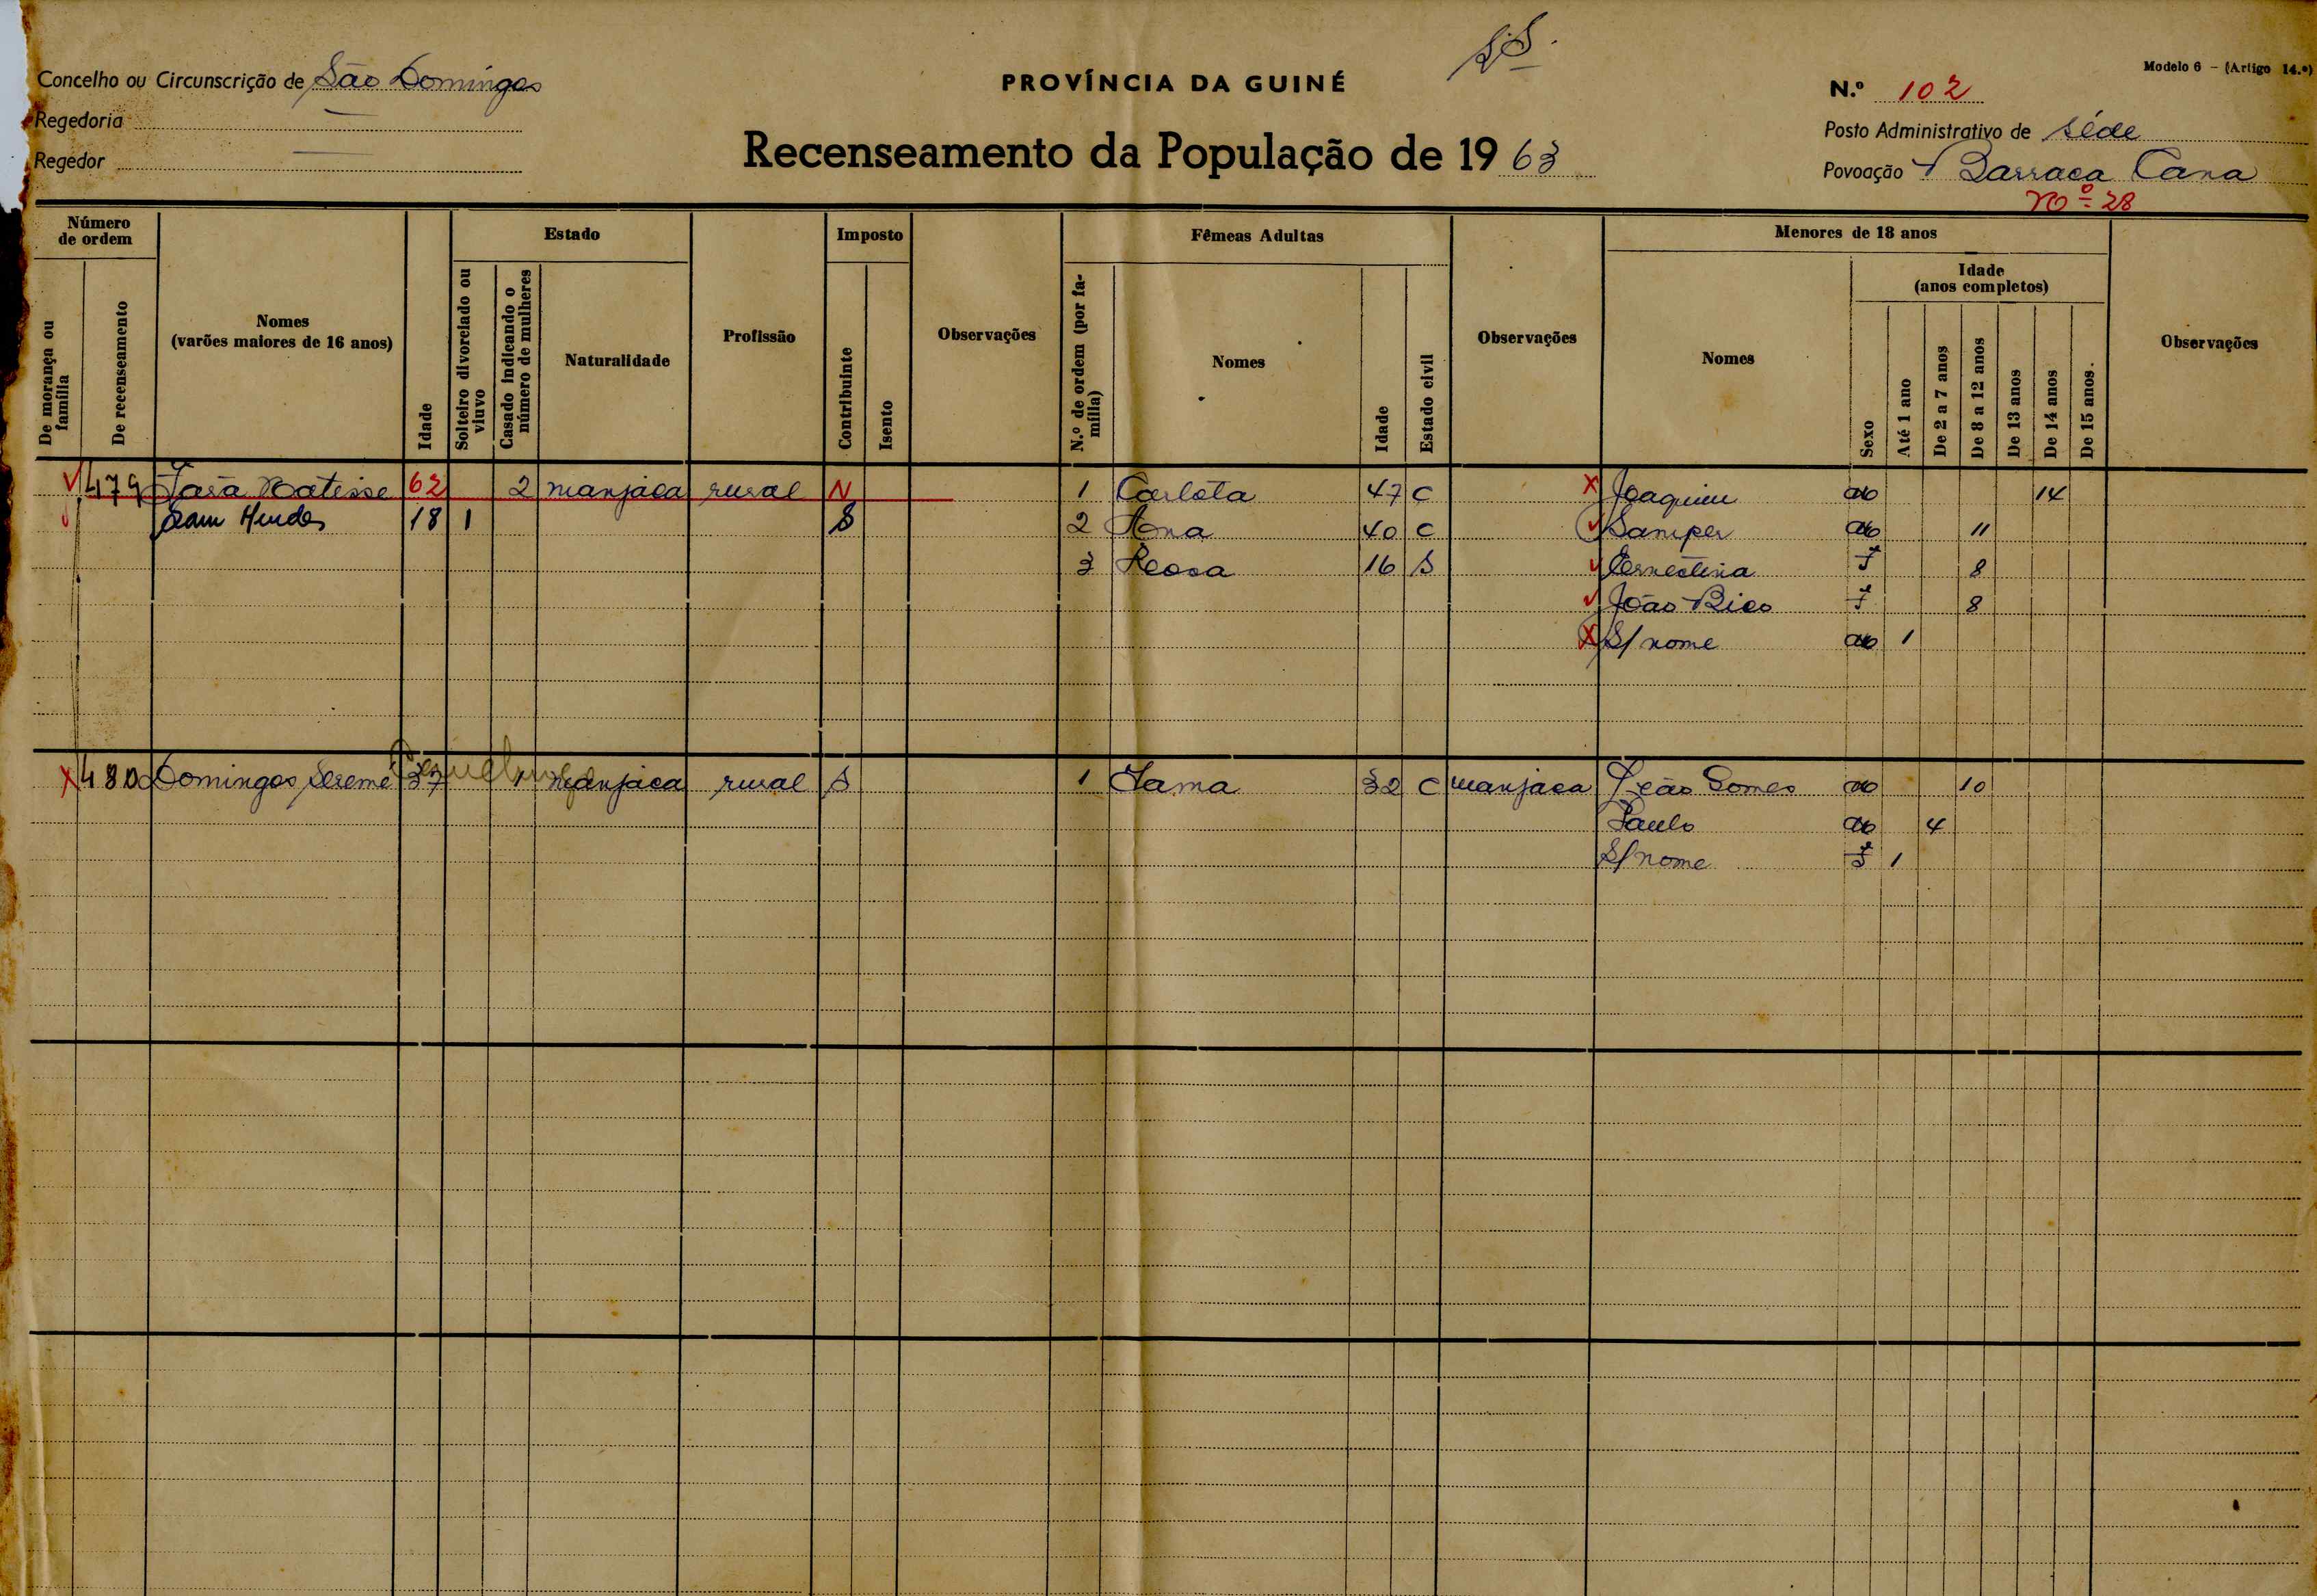 S.S.
Modelo 6 - (Artigo 14.º)
Concelho ou Circunscrição de São Domingos
PROVÍNCIA DA GUINÉ
N.º 102
Regedoria —
Posto Administrativo de séde
Regedor —
Recenseamento da População de 1963
Povoação Barraca Cana
Nº 28
Número de ordem
Estado
Imposto
Fêmeas Adultas
Menores de 18 anos
Idade (anos completos)
De morança ou família
De recenseamento
Nomes (varões maiores de 16 anos)
Idade
Solteiro divorciado ou viuvo
Casado indicando o número de mulheres
Naturalidade
Profissão
Contribuinte
Isento
Observações
N.º de ordem (por família)
Nomes
Idade
Estado civil
Observações
Nomes
Sexo
Até 1 ano
De 2 a 7 anos
De 8 a 12 anos
De 13 anos
De 14 anos
De 15 anos.
Observações
479 62 2 manjaca rural N 1 Carlota 47 C Joaquim 14
Mendes 18 1 S 2 Ana 40 C Samper 11
3 Rosa 16 S Ernestina F 8
João Bico F 8
S/ nome 1
480 Domingos Sereme 37 1 manjaca rural S 1 Jama 32 C manjaca João Gomes 10
Paulo 4
S/ nome F 1